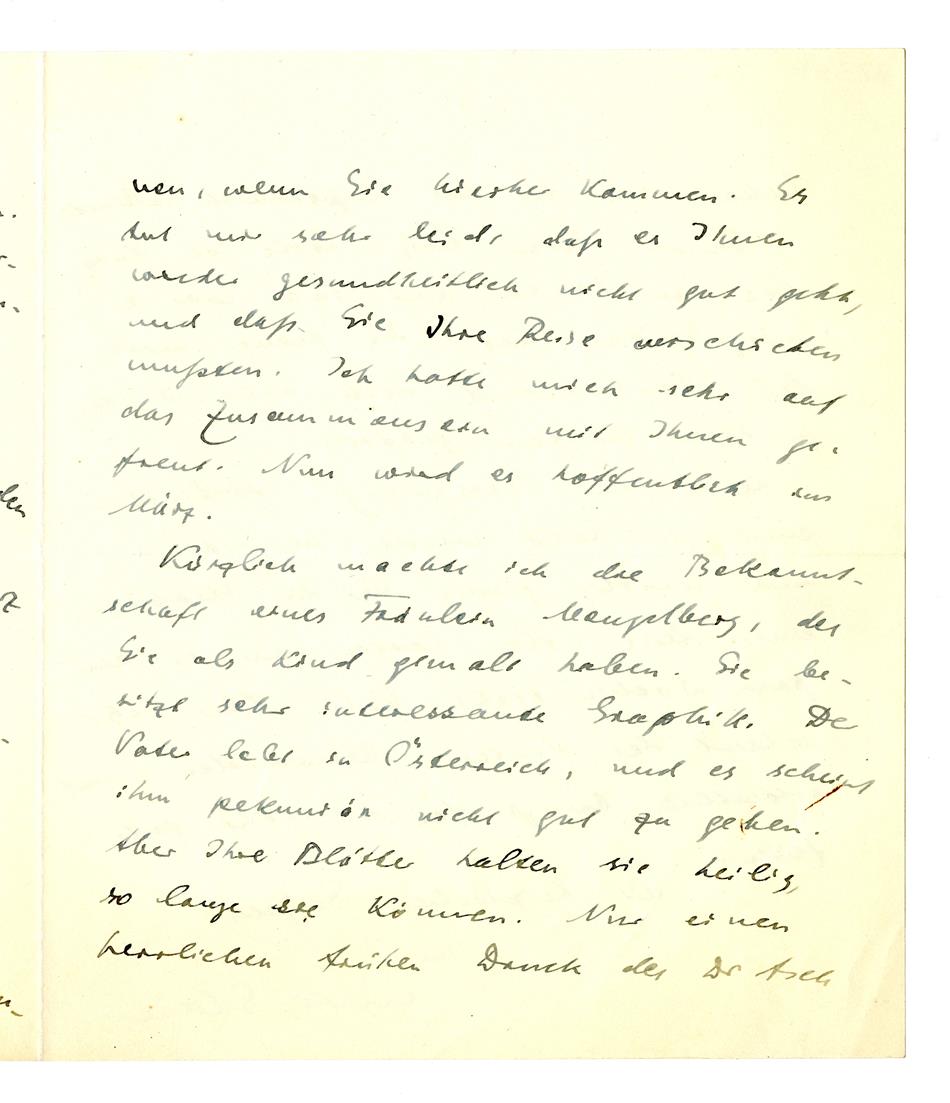 nen, wenn Sie hierher kommen. Es
tut mir sehr leid, daß es Ihnen
wieder gesundheitlich nicht gut geht,
und daß Sie Ihre Reise verschieben
mußten. Ich hatte mich sehr auf
das Zusammensein mit Ihnen ge-
freut. Nun wird es hoffentlich im
März.
Kürzlich machte ich die Bekannt-
schaft eines Fräulein Mengelberg, die
Sie als Kind gemalt haben. Sie be-
sitzt sehr interessante Graphik. Der
Vater lebt in Österreich, und es scheint
ihm pekuniär nicht gut zu gehen.
Aber Ihre Blätter halten sie heilig,
so lange sie können. Nur einen
herrlichen frühen Druck des Dr Asch